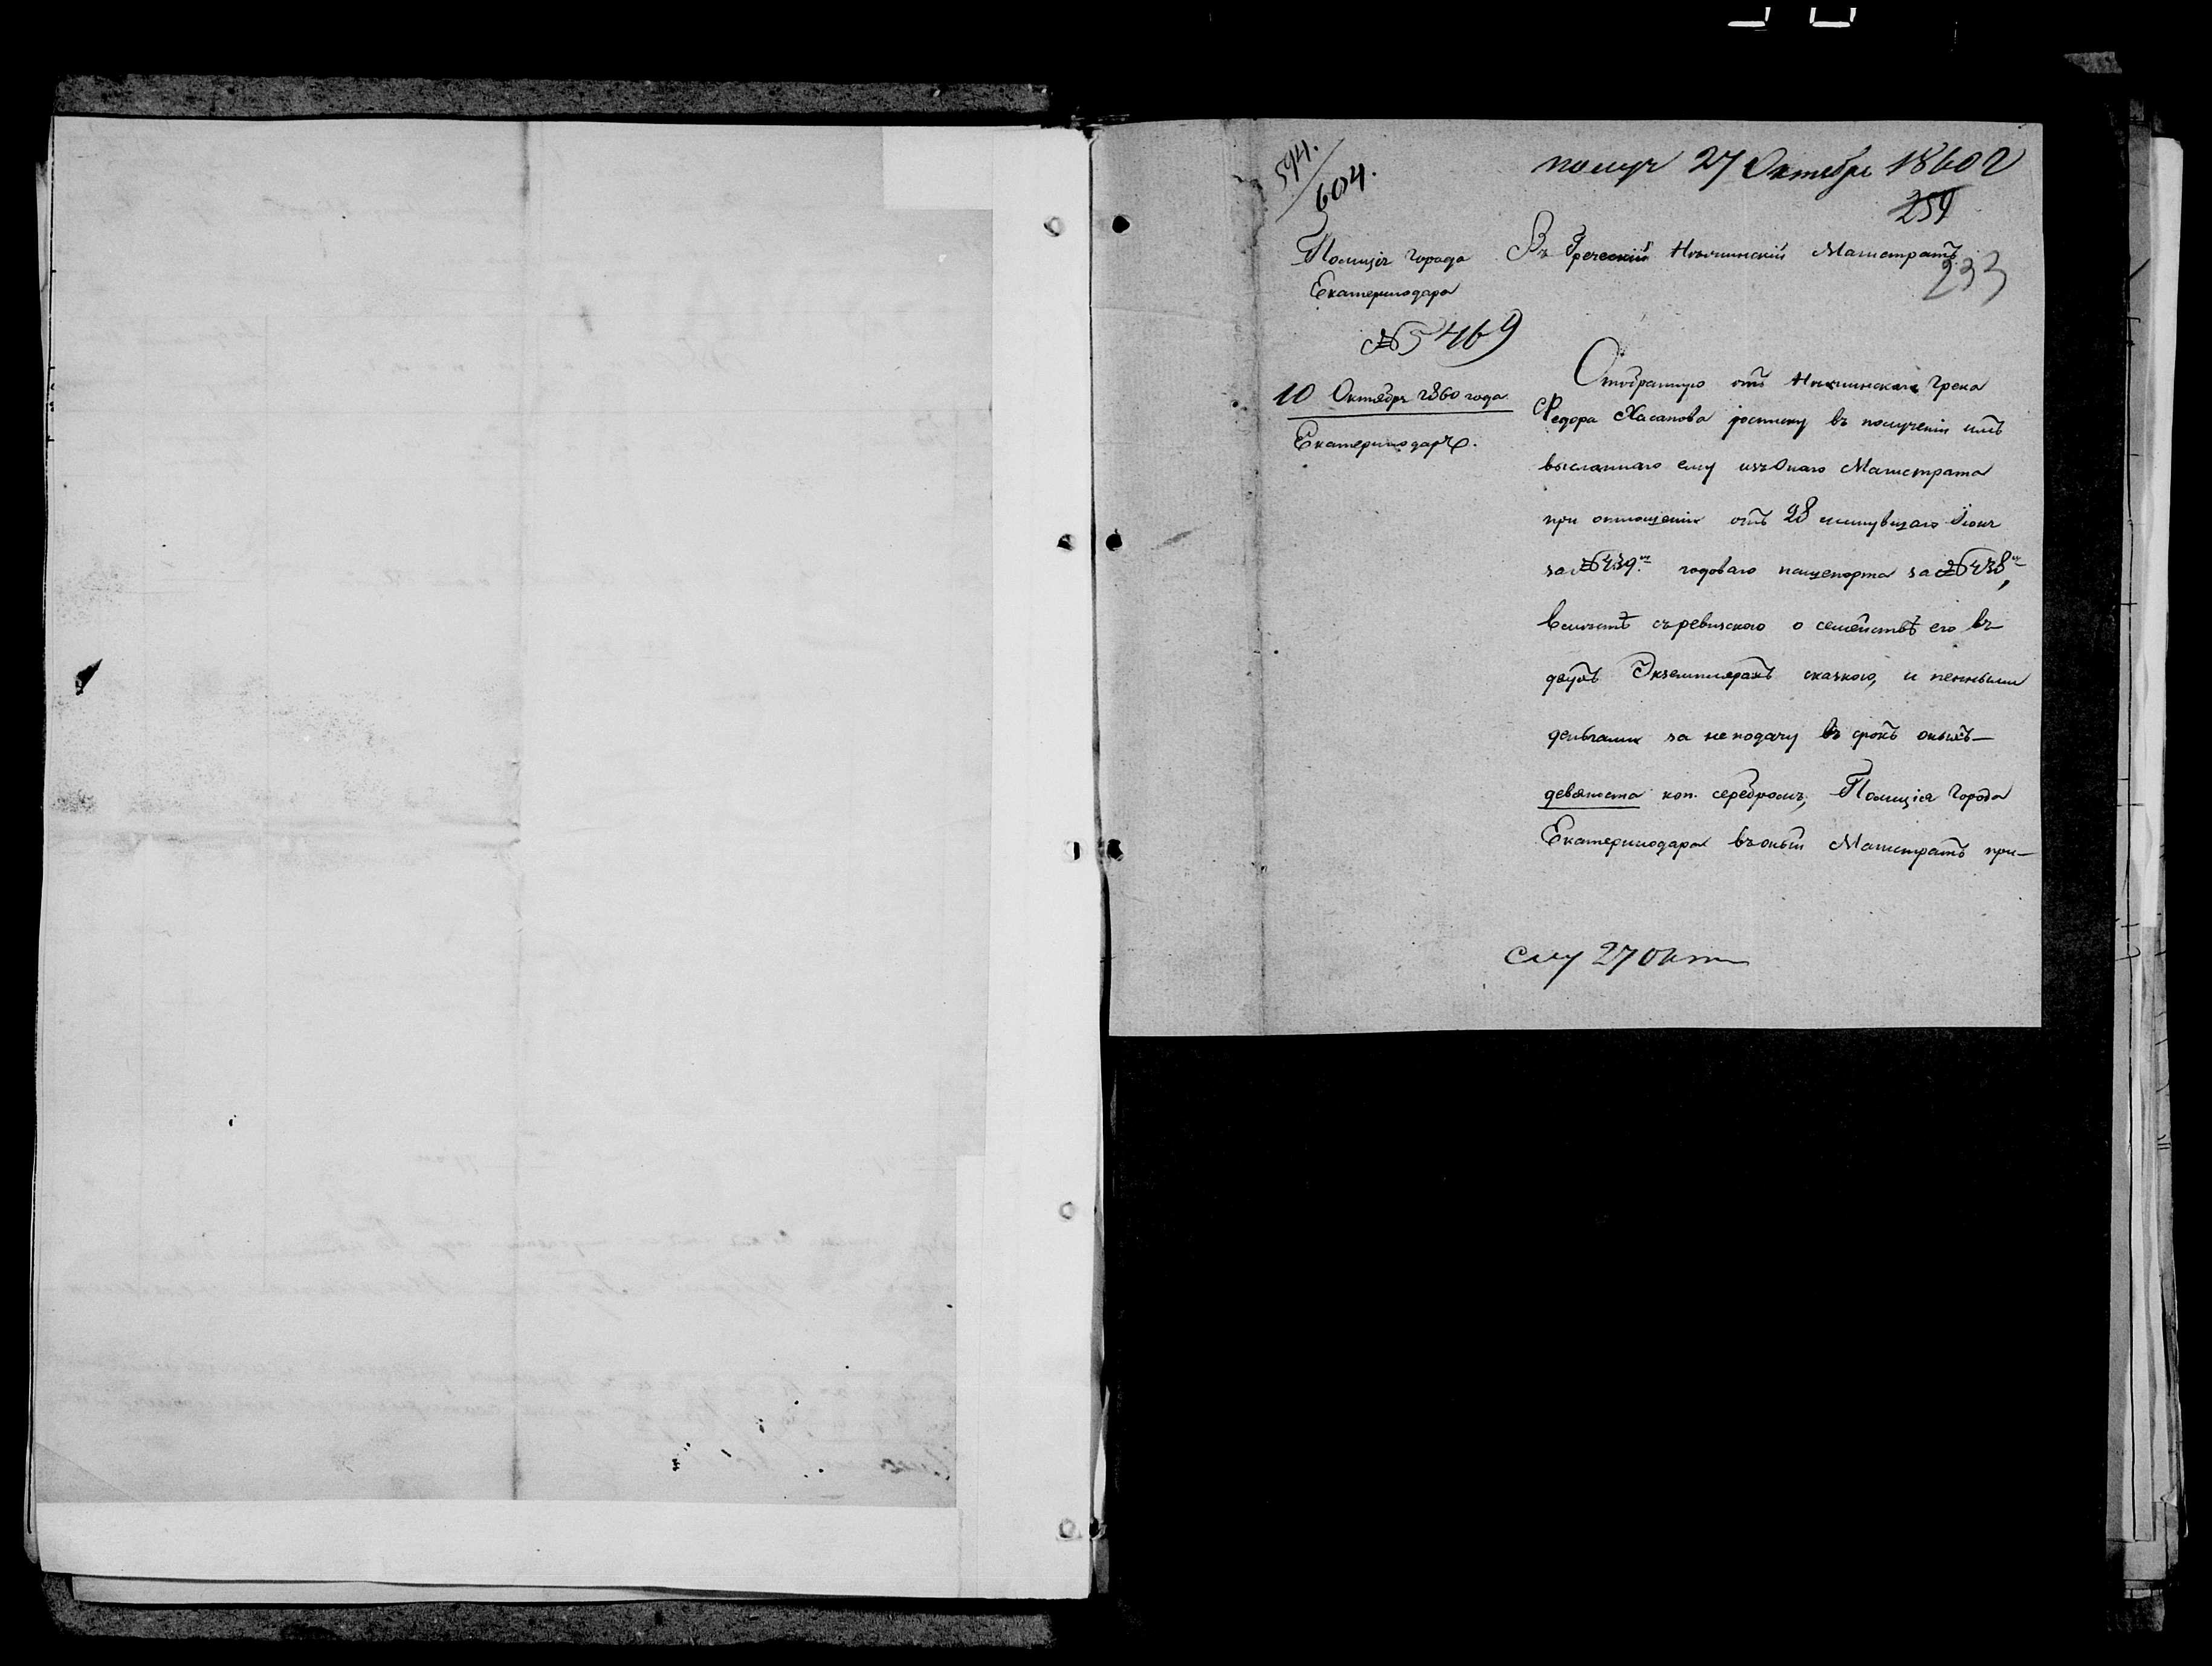 594./604.
получ 27 Октября 1860 г
259
233
Полиція города
Екатеринодара
№ 5469
10 Октября 1860 года
Екатеринодаръ.
Въ Греческій Нѣжинскій Магистратъ.
Отобранную отъ Нѣжинскаго Грека
Федора Хасанова росписку въ полученіи имъ
высланнаго ему изъ Онаго Магистрата
при отношеніи отъ 28 минувшаго Іюня
за № 439.м годоваго пашпорта за № 438м,
вмѣстѣ съ ревизскою о семействѣ его въ
двухъ Экземплярахъ сказкою, и пенными
деньгами за не подачу въ срокъ оныхъ—
девяноста коп. серебромъ, Полиція Города
Екатеринодара въ оный Магистратъ при—
слу 27 Окт